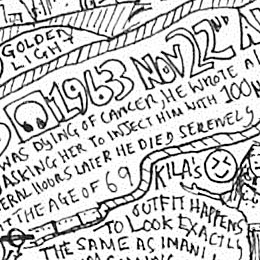 GOLDEN
LIGHT
1963 NOV 22ND
WAS DYING OF CANCER, HE WROTE A
ASKING HER TO INJECT HIM WITH 100
ERAL HOURS LATER HE DIED SERENELY
T THE AGE OF 69
KILA'S
OUTFIT HAPPENS
TO LOOK EXACTLY
THE SAME AS IMANI